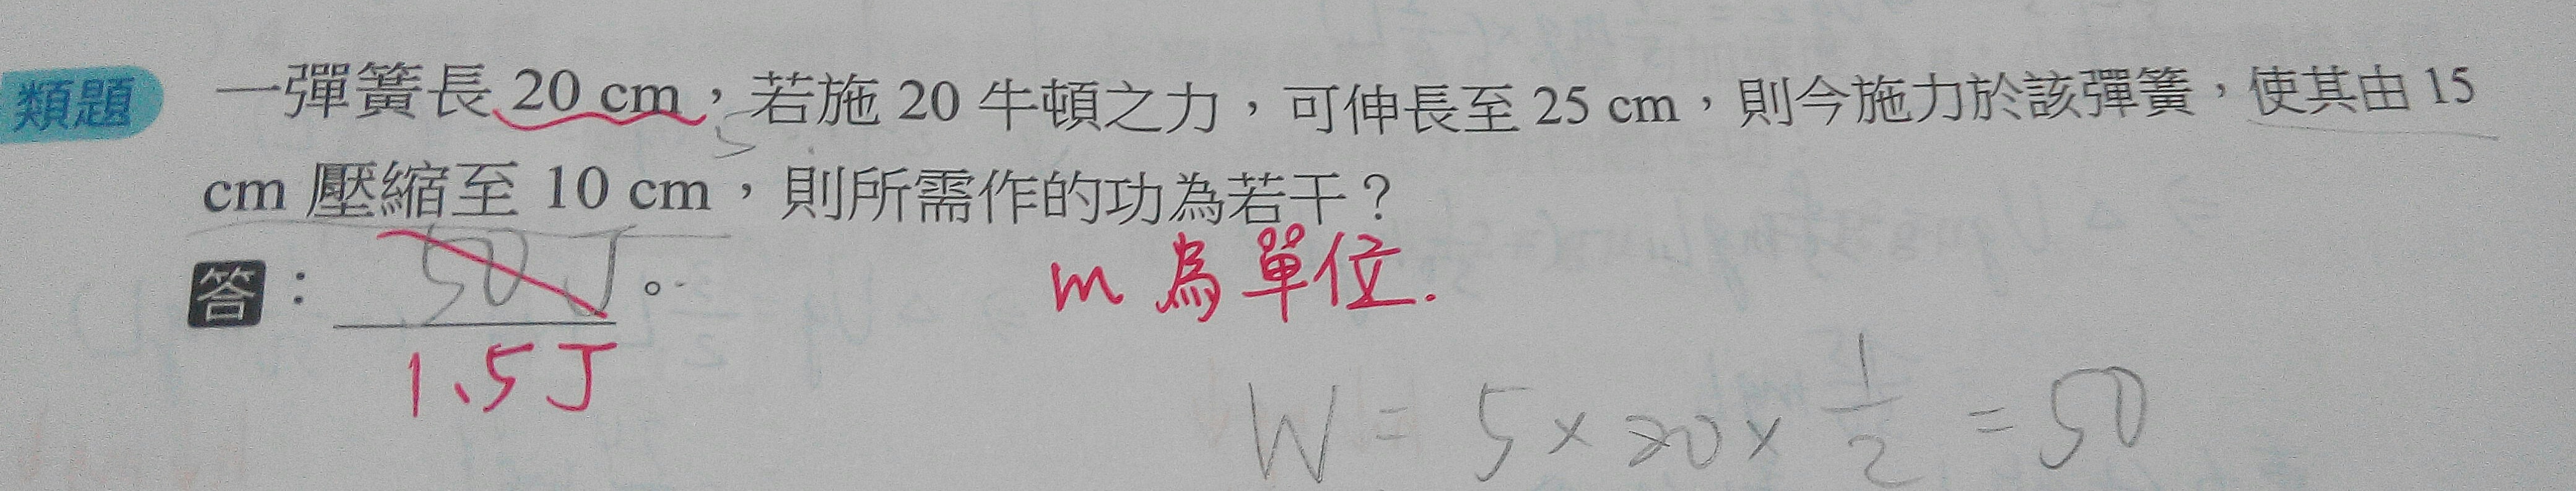 類題 一彈簧長 20 cm，若施 20 牛頓之力，可伸長至 25 cm，則今施力於該彈簧，使其由 15
5
cm 壓縮至 10 cm，則所需作的功為若干？
答：50 J。
m 為單位.
1.5J
W = 5 × 20 × 1/2 = 50